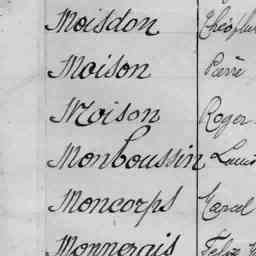 Moisdon
Moison Pierre
Moison Roger
Monboussin Louis
Moncorps Marcel
Monnerais Félix